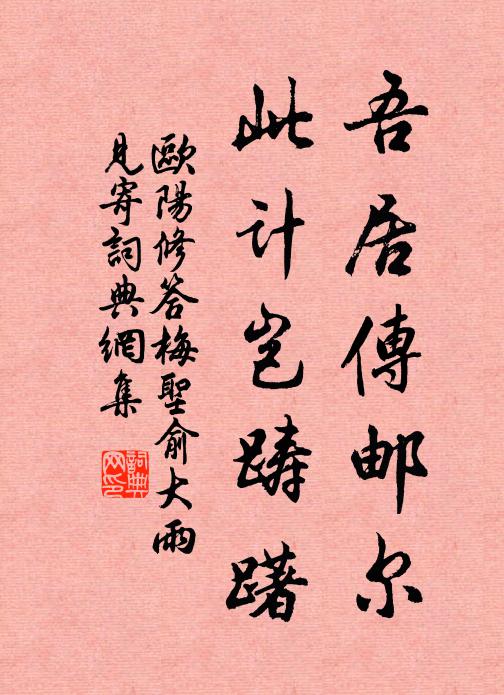 吾居傳邮尔
此计岂踌躇
歐陽修答梅聖俞大雨
見寄詞典網集
詞典网印